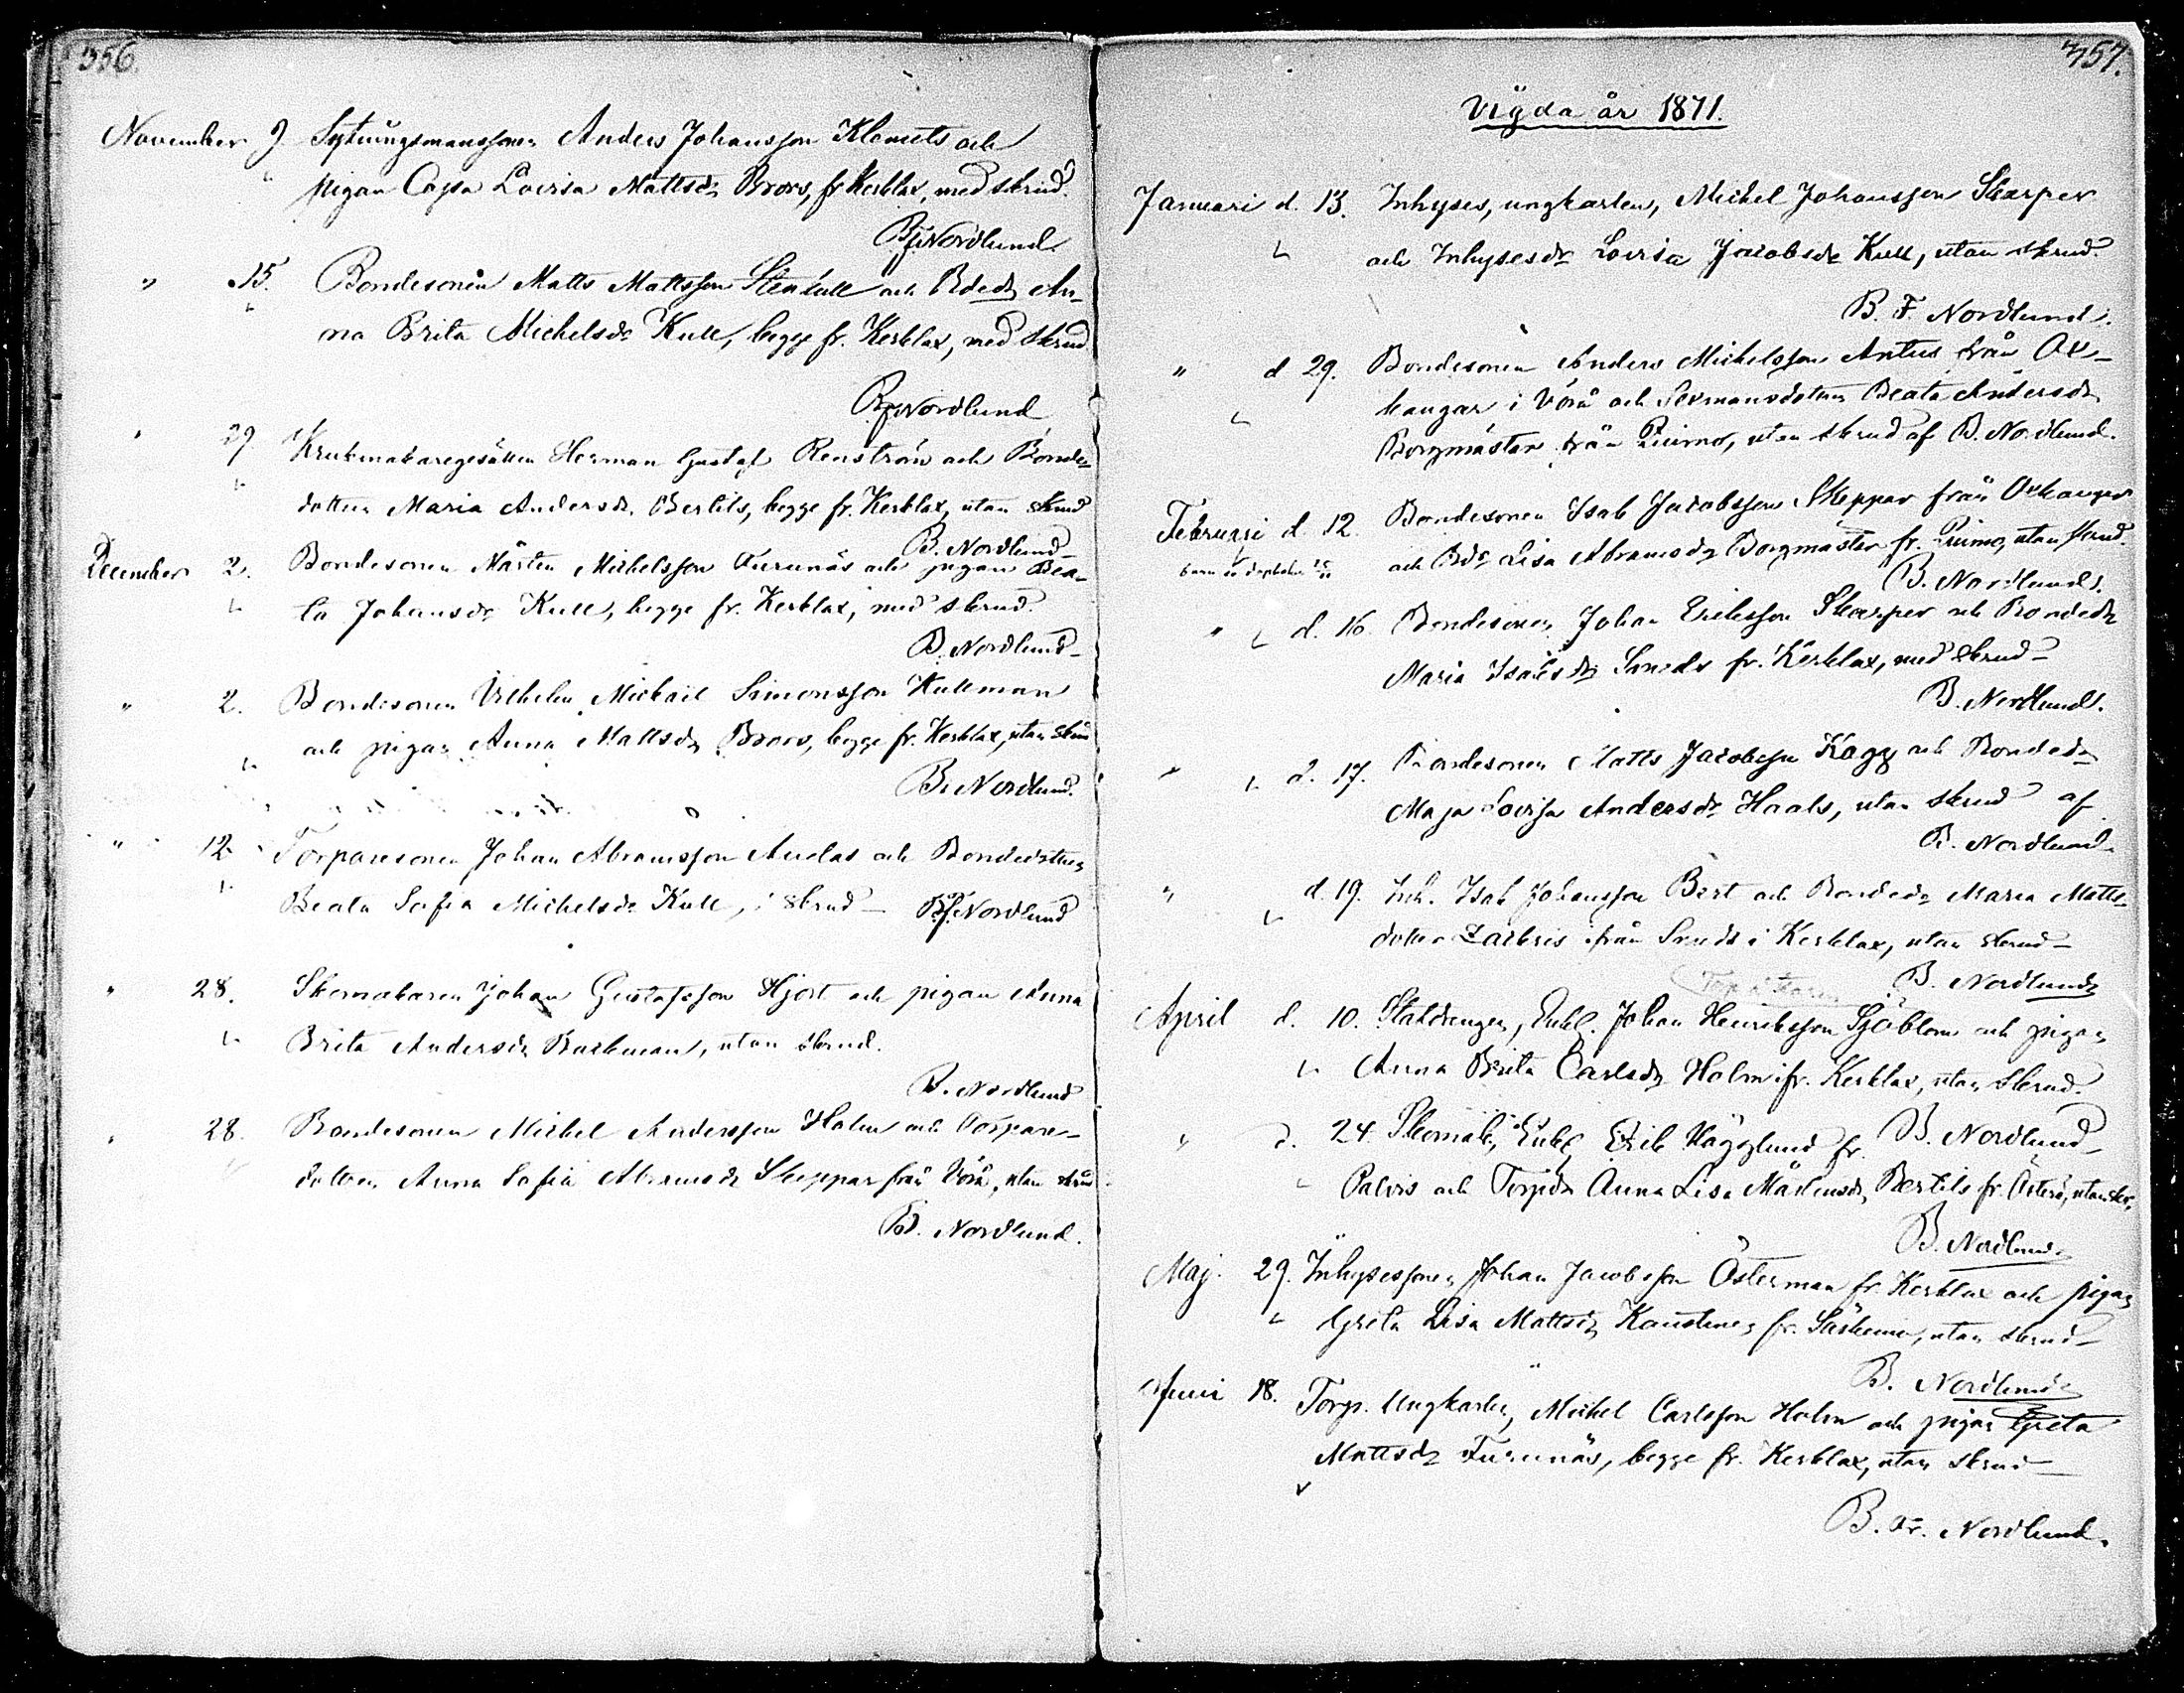 356.
November 9. Sytningsmanssonen Anders Johansson Klemets och
pigan Cajsa Lovisa Mattsdr Broos, fr. Kerklax, med skrud.
B.F. Nordlund.
" 15. Bondesonen Matts Mattsson Stenkull och Bdedr An-
na Brita Michelsdr Kull, begge fr. Kerklax, med skrud
B.F. Nordlund
" 29 Krukmakaregesällen Herman Gustaf Renström och Bonde-
dottren Maria Andersdr Bertils, begge fr. Kerklax, utan skrud
B. Nordlund
December 2. Bondesonen Mårten Michelsson Furunäs och pigan Bea-
ta Johansdr Kull, begge fr. Kerklax, med skrud.
B. Nordlund
" 2. Bondesonen Vilhelm Mickael Simonsson Kullman
och pigan Anna Mattsdr Broos, begge fr. Kerklax, utan skrud
B. Nordlund.
" 12. Torparesonen Johan Abramsson Audas och Bondedottren
Beata Sofia Michelsdr Kull, i skrud B.F. Nordlund
" 28. Skomakaren Johan Gustafsson Hjort och pigan Anna
Brita Andersdr Backman, utan skrud.
B. Nordlund
" 28. Bondesonen Michel Andersson Holm och Torpare-
dottren Anna Sofia Abramsdr Skeppar från Vörå, utan skrud
B. Nordlund.
357.
Vigda år 1871.
Januari d. 13. Inhyses, ungkarlen, Michel Johansson Skarper
och Inhysesdr Lovisa Jacobsdr Kull, utan skrud.
B. F. Nordlund.
" d 29. Bondesonen Anders Michelsson Antus från Ox-
kangar i Vörå och Sexmansdottren Beata Andersdr
Borgmästar från Quimo, utan skrud af B. Nordlund.
Februari d. 12. Bondesonen Isak Jacobsson Skeppar från Oxkangar
och Bdr Lisa Abramsdr Borgmästar fr. Quimo, utan skrud.
B. Nordlund.
" d. 16. Bondesonen Johan Ericsson Skarper och Bondedr
Maria Isaksdr Smeds fr. Kerklax, med skrud
B. Nordlund.
" d. 17. Bondesonen Matts Jacobsson Kagg och Bondedr
Maja Lovisa Andersdr Haals, utan skrud af
B. Nordlund.
" d. 19. Inh. Isak Johansson Bert och Bondedr Maria Matts-
dotter Zackris ifrån Smeds i Kerklax, utan skrud
B. Nordlund
April d. 10. Staldrengen, Enkl. Johan Henriksson Sjöblom och pigan
Anna Brita Carlsdr Holm ifr. Kerklax, utan skrud.
B. Nordlund
" d. 24. Skomak, Enkl. Erik Hägglund fr.
Palvis och Torpdr Anna Lisa Mårtensdr Bertils fr. Österö, utan skr.
B. Nordlund
Maj. 29. Inhysessonen Johan Jacobsson Österman fr. Kerklax och pigan
Greta Lisa Mattsdr Kaustinen fr. Särkimo, utan skrud
B. Nordlund
Juni 18. Torp. Ungkarlen, Michel Carlsson Holm och pigan Greta
Mattsdr Furunäs, begge fr. Kerklax, utan skrud
B. Fr. Nordlund.